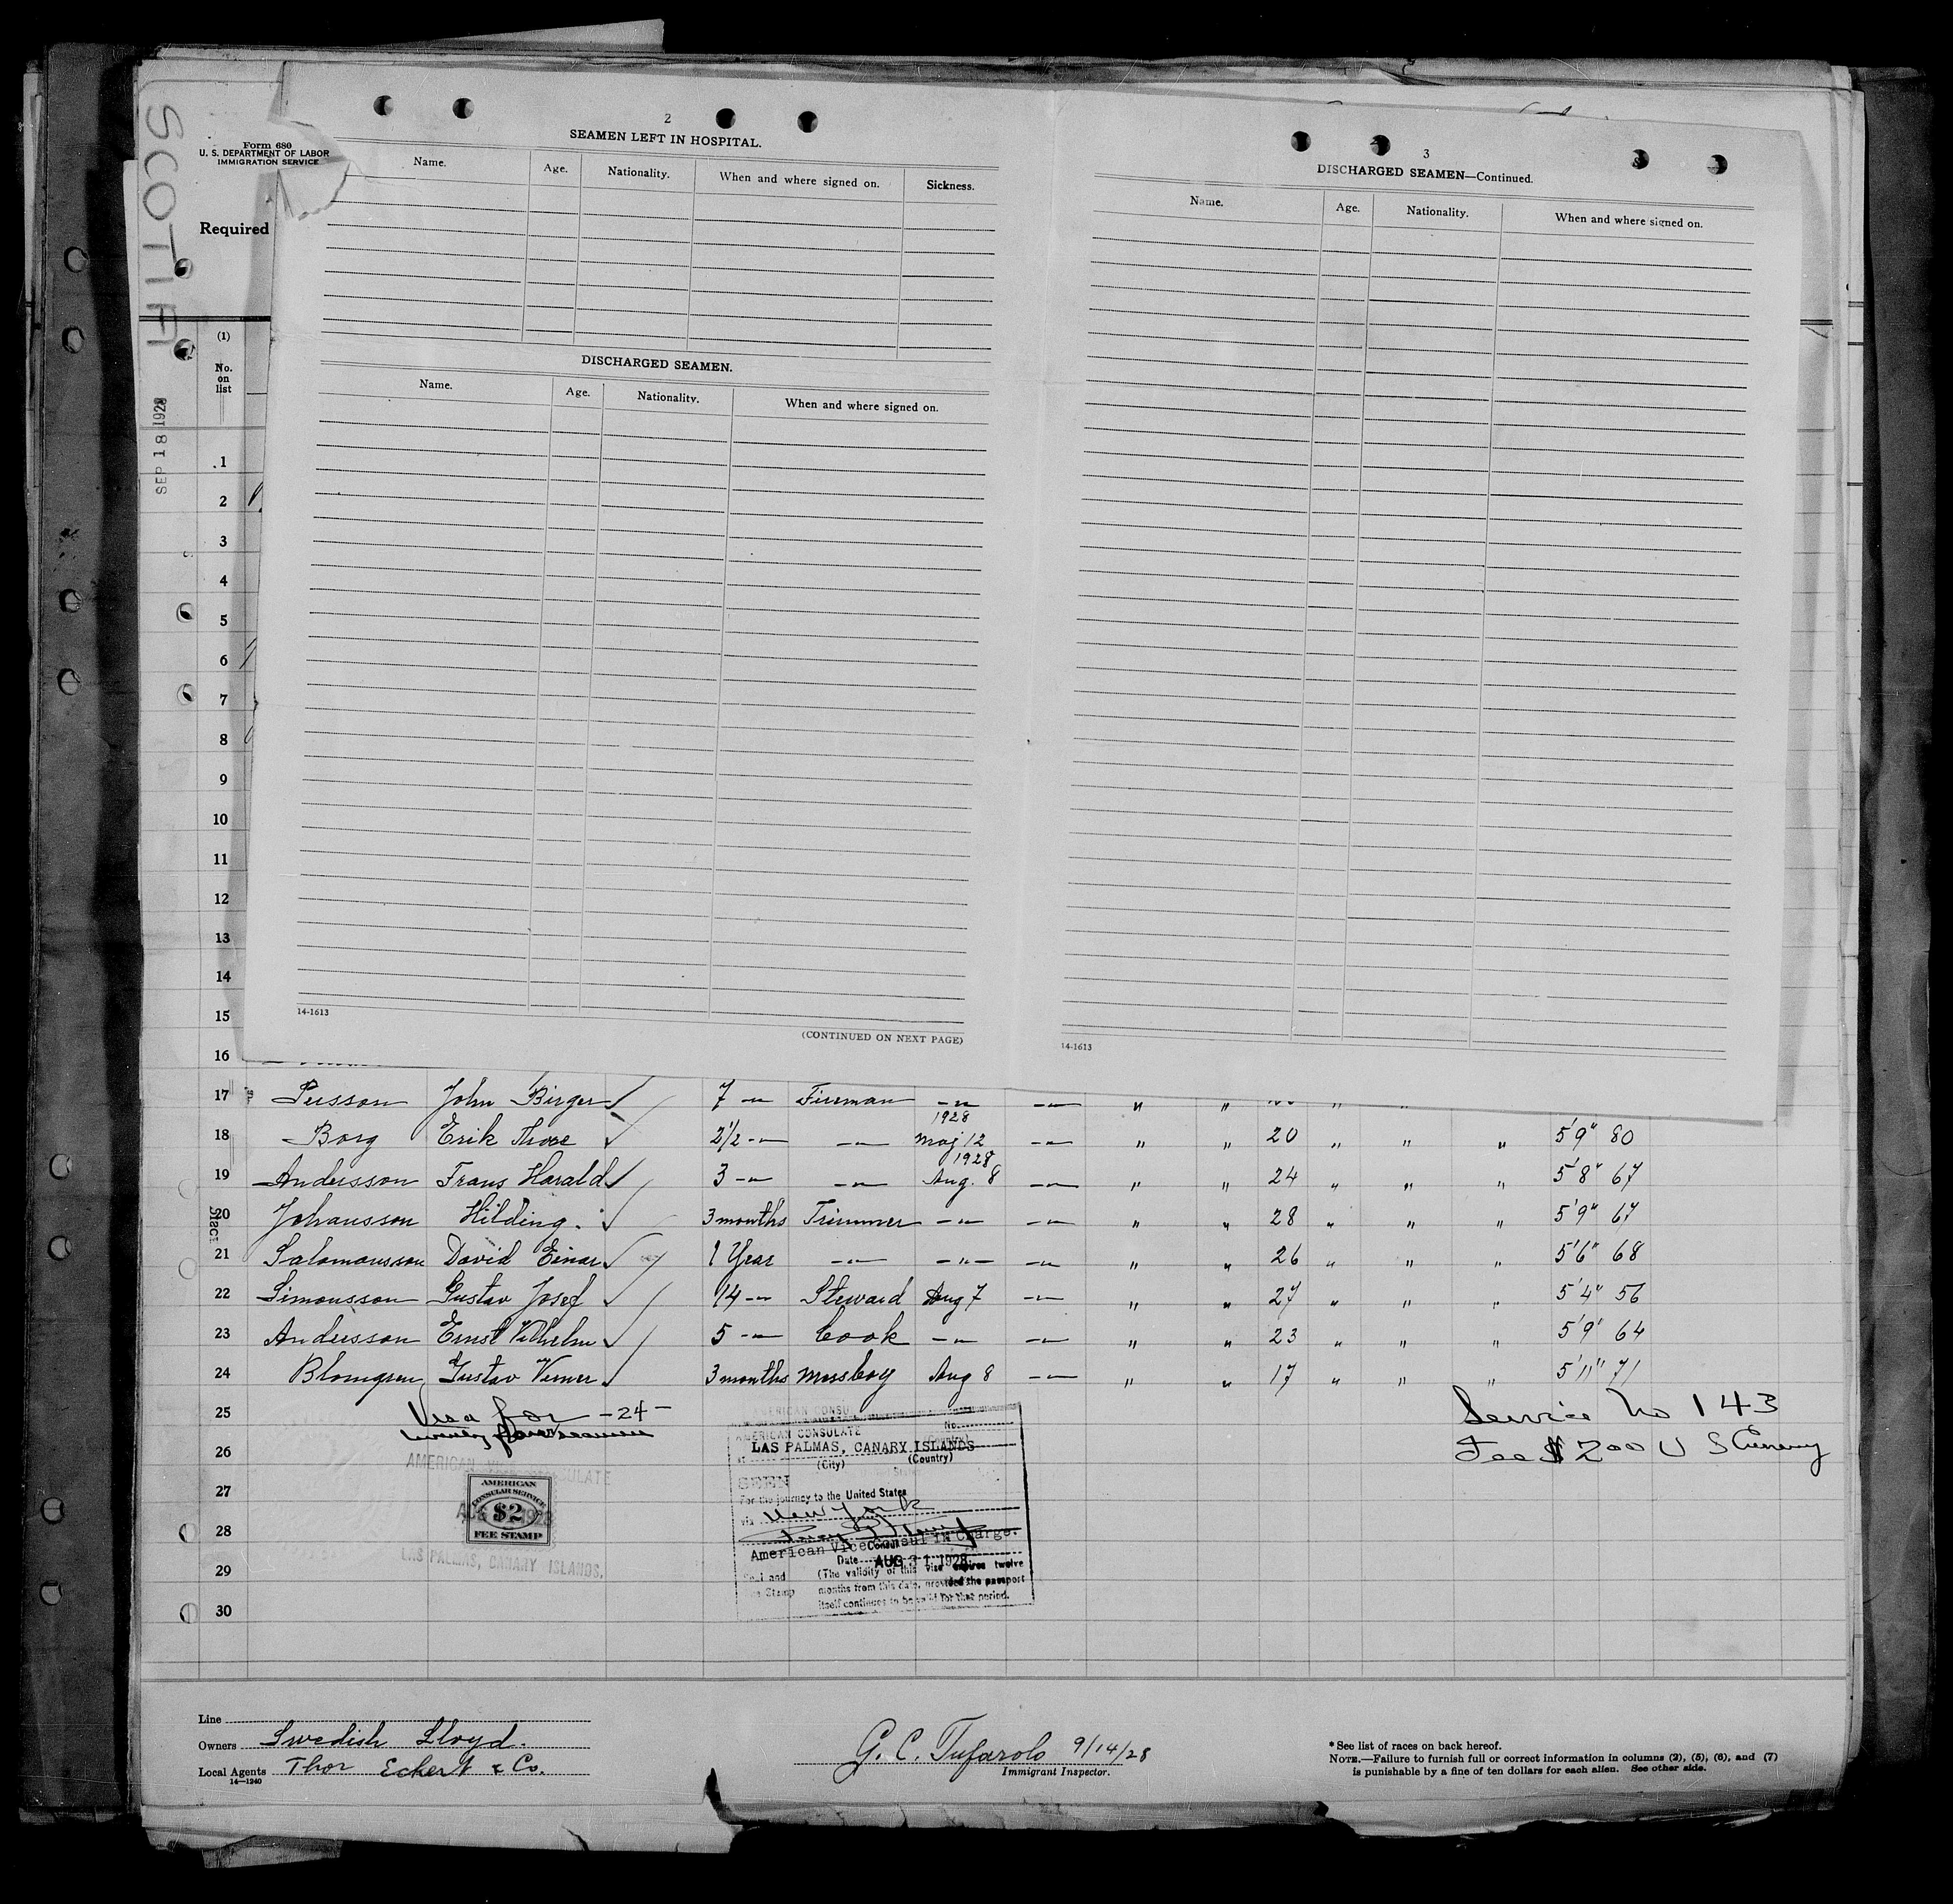 SCOTIA
SEP 18 1928
Form 680
U. S. DEPARTMENT OF LABOR
IMMIGRATION SERVICE
Required
(1)
No.
on
list
2
SEAMEN LEFT IN HOSPITAL.
Name. Age. Nationality. When and where signed on. Sickness.
DISCHARGED SEAMEN.
Name. Age. Nationality. When and where signed on.
14-1613
(CONTINUED ON NEXT PAGE)
3
DISCHARGED SEAMEN—Continued.
Name. Age. Nationality. When and where signed on.
14-1613
1
2
3
4
5
6
7
8
9
10
11
12
13
14
15
16
17 Persson John Birger ✓ 7 -"- Fireman -"- -"- " "
18 Borg Erik Thore ✓ 2½ -"- -"- 1928 Maj 12 -"- " " 20 " " " 5'9" 80
19 Andersson Frans Harald ✓ 3 -"- -"- 1928 Aug. 8 -"- " " 24 " " " 5'8" 67
20 Johansson Hilding. ✓ 3 months Trimmer -"- -"- " " 28 " " " 5'9" 67
21 Salomonsson David Einar ✓ 1 Year -"- -"- -"- " " 26 " " " 5'6" 68
22 Simonsson Gustav Josef ✓ 14 -"- Steward Aug 7 -"- " " 27 " " " 5'4" 56
23 Andersson Ernst Vilhelm ✓ 5 -"- Cook -"- -"- " " 23 " " " 5'9" 64
24 Blomgren Gustav Verner ✓ 3 months Messboy Aug 8 -"- " " 17 " " " 5'11" 71
25 Visa for -24-
twenty four seamen
26
27
28
29
30
Service No 143
Fee $ 2.00 U S Currency
AMERICAN VICE CONSULATE
AMERICAN
CONSULAR SERVICE
$2
FEE STAMP
LAS PALMAS, CANARY ISLANDS.
AMERICAN CONSULATE
No.
LAS PALMAS, CANARY ISLANDS
(City) (Country)
SEEN
For the journey to the United States
via New York
American Vice Consul in Charge.
Date AUG 31 1928
Seal and
Fee Stamp
(The validity of this visa expires twelve
months from this date, provided the passport
itself continues to be valid for that period.
Line
Owners Swedish Lloyd.
Local Agents Thor Eckert & Co.
14—1240
G. C. Tufarolo 9/14/28
Immigrant Inspector.
* See list of races on back hereof.
NOTE.—Failure to furnish full or correct information in columns (2), (5), (6), and (7)
is punishable by a fine of ten dollars for each alien. See other side.